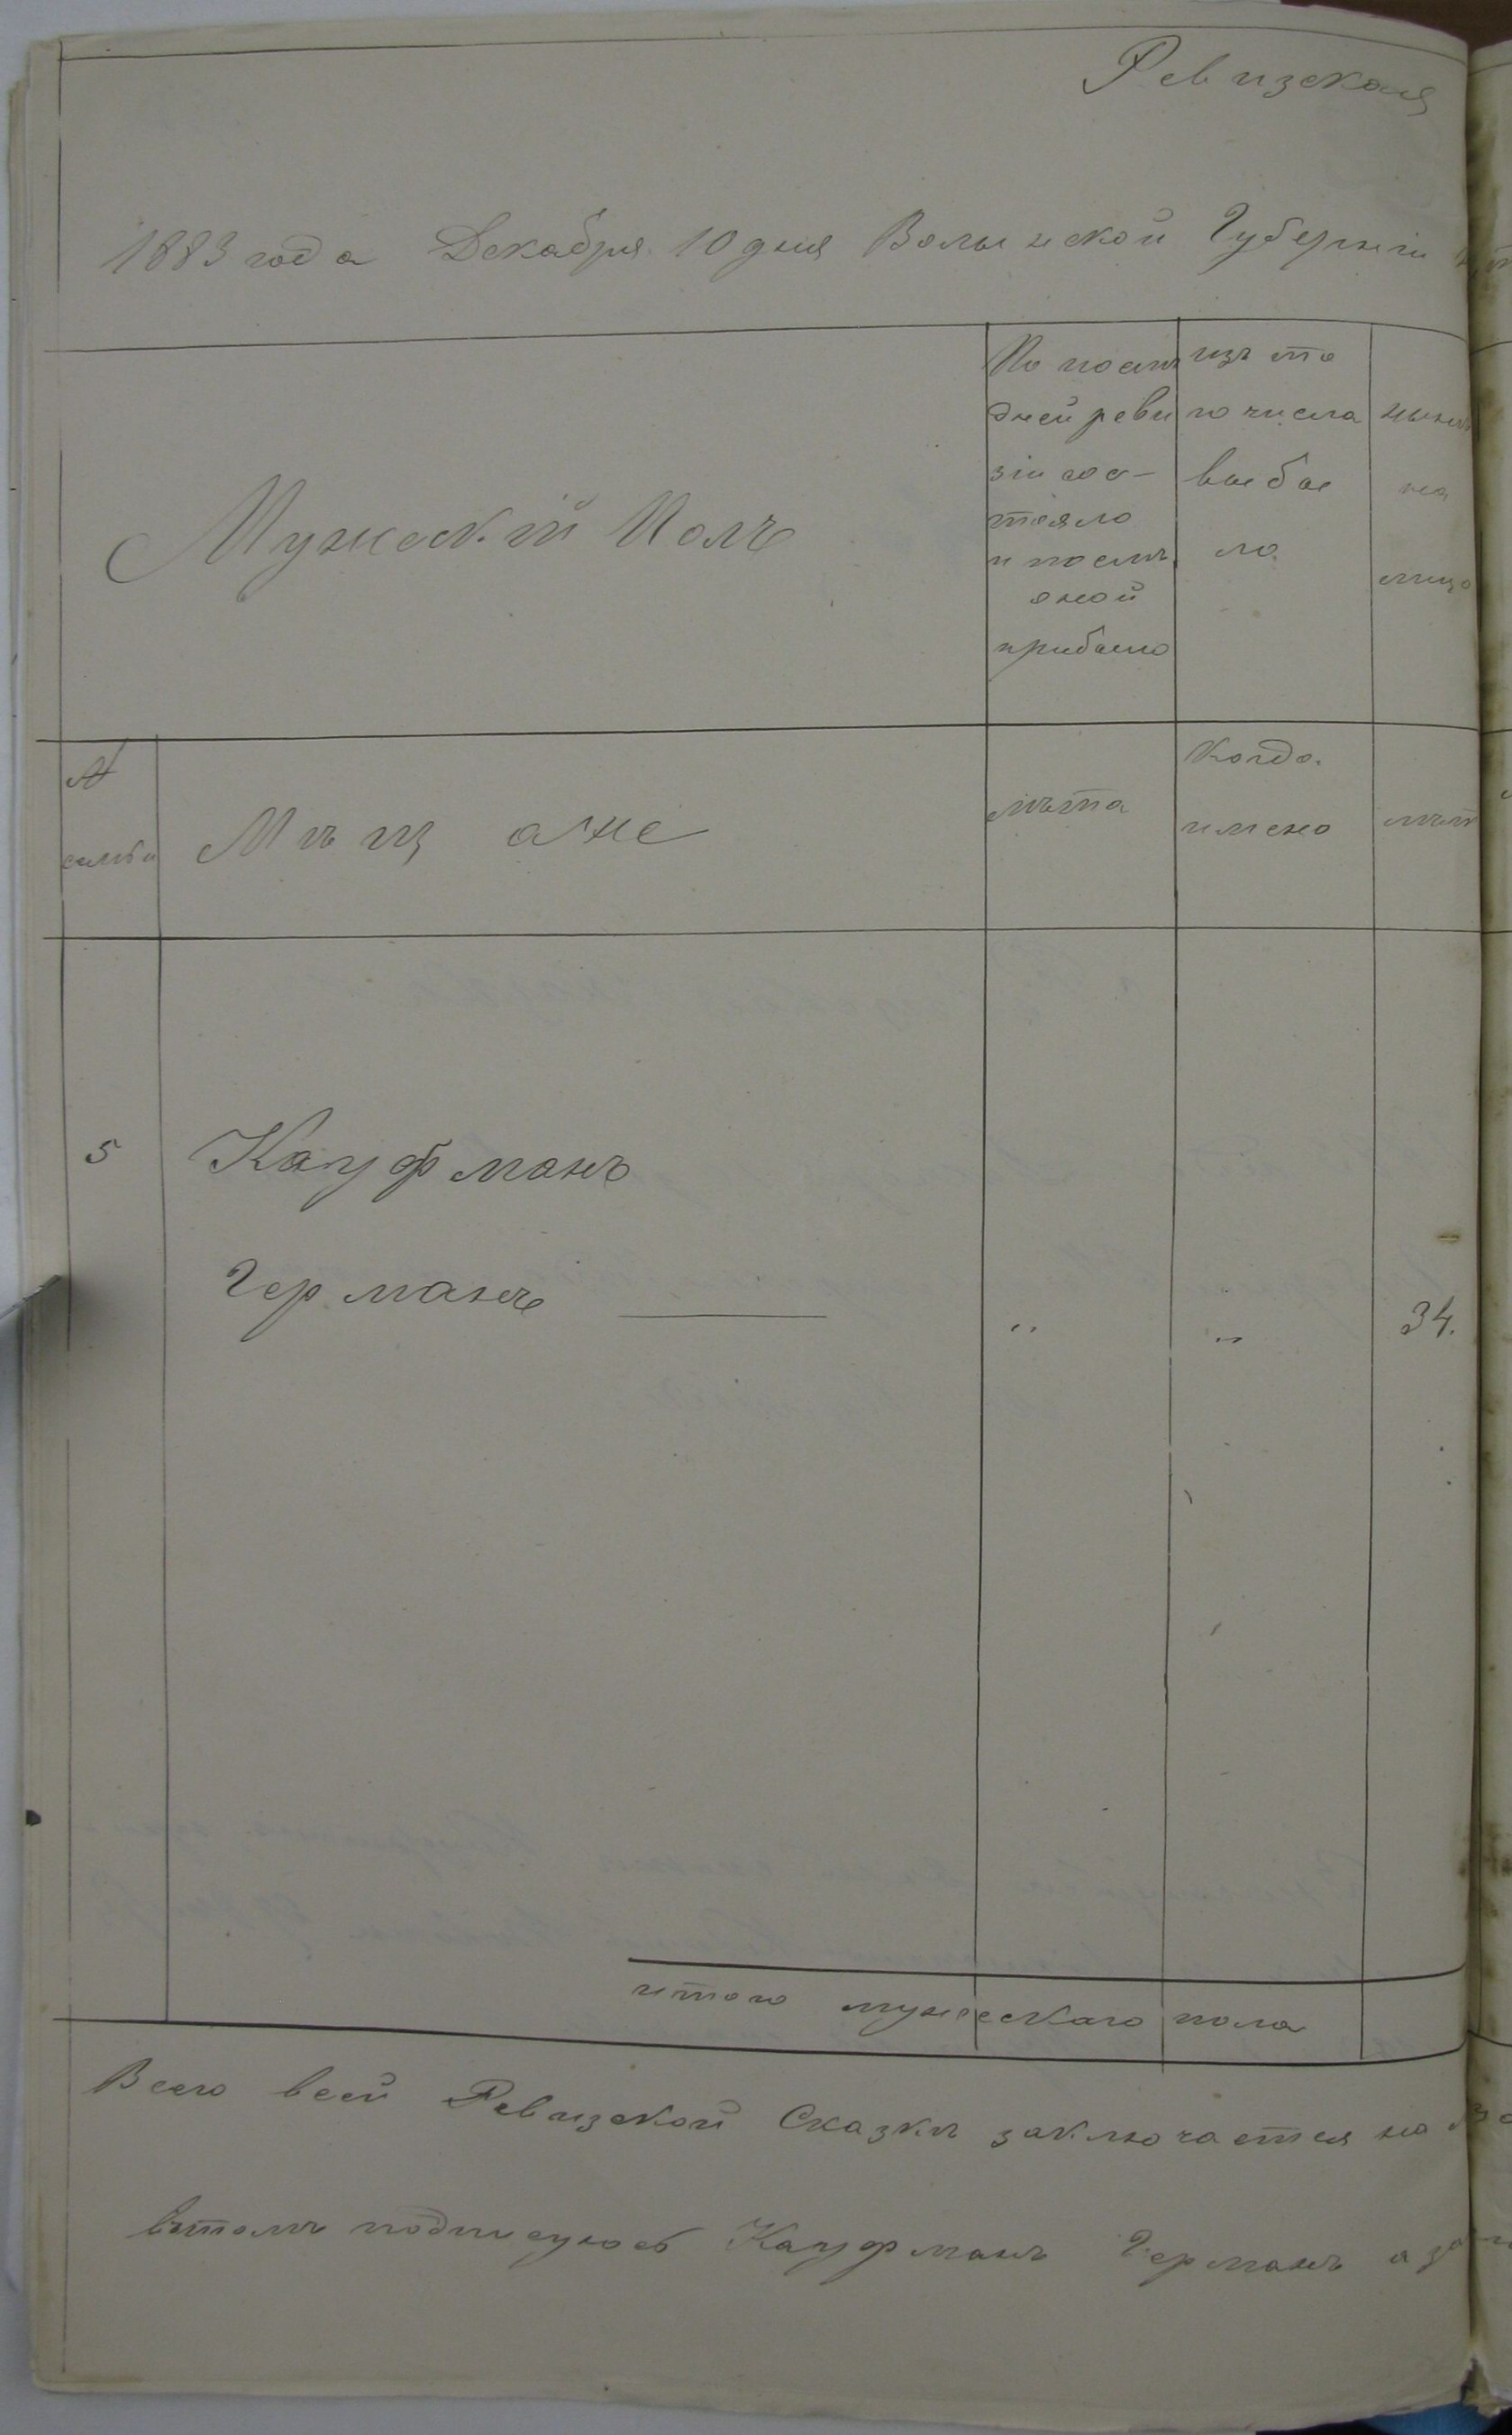 Ревизская
1883 года Декабря 10 дня Волынской Губерніи
Мужескій Полъ
По послѣ
дней реви
зіи сос-
тояло
и послѣ
оной
прибыло
изъ то
го числа
выбы
ло.
нынѣ
на
лицо
№
семьи
Мѣщане
лѣта
Когда.
имено
лѣт
5 Кауфманъ
Германъ " " 34.
итого мужескаго пола
Всего всей Ревизской Сказкѣ заключается на
втомъ подписуюсь Кауфманъ Германъ а за